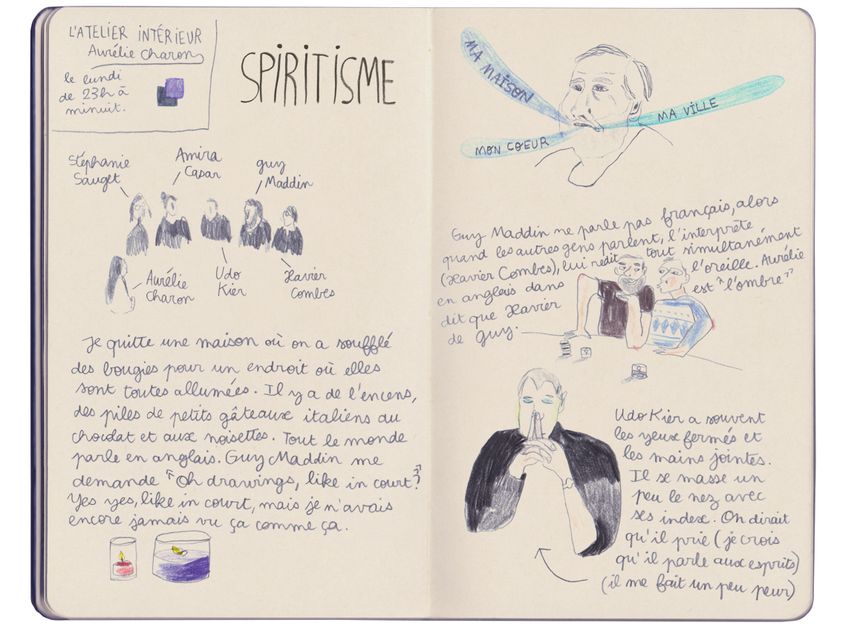 L'ATELIER INTÉRIEUR
Aurélie Charon
le lundi
de 23h à
minuit.
SPIRITISME
Stéphanie
Sauget
Amira
Casar
guy
Maddin
Aurélie
Charon
Udo
Kier
Xavier
Combes
Je quitte une maison où on a soufflé
des bougies pour un endroit où elles
sont toutes allumées. Il y a de l'encens,
des piles de petits gâteaux italiens au
chocolat et aux noisettes. Tout le monde
parle en anglais. Guy Maddin me
demande "Oh drawings, like in court?"
Yes yes, like in court, mais je n'avais
encore jamais vu ça comme ça.
MA MAISON
MA VILLE
MON COEUR
Guy Maddin ne parle pas français, alors
quand les autres gens parlent, l'interprète
(Xavier Combes), lui redit tout simultanément
en anglais dans l'oreille. Aurélie
dit que Xavier est "l'ombre"
de Guy.
Udo Kier a souvent
les yeux fermés et
les mains jointes.
Il se masse un
peu le nez avec
ses index. On dirait
qu'il prie (je crois
qu'il parle aux esprits)
(il me fait un peu peur)